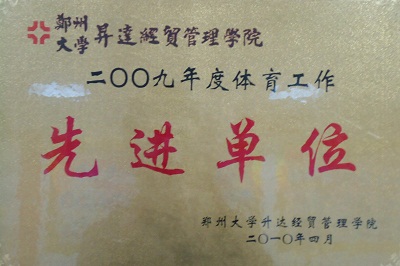 郑州大學昇達經貿管理學院
二〇〇九年度体育工作
先进单位
郑州大学升达经贸管理学院
二〇一〇年四月